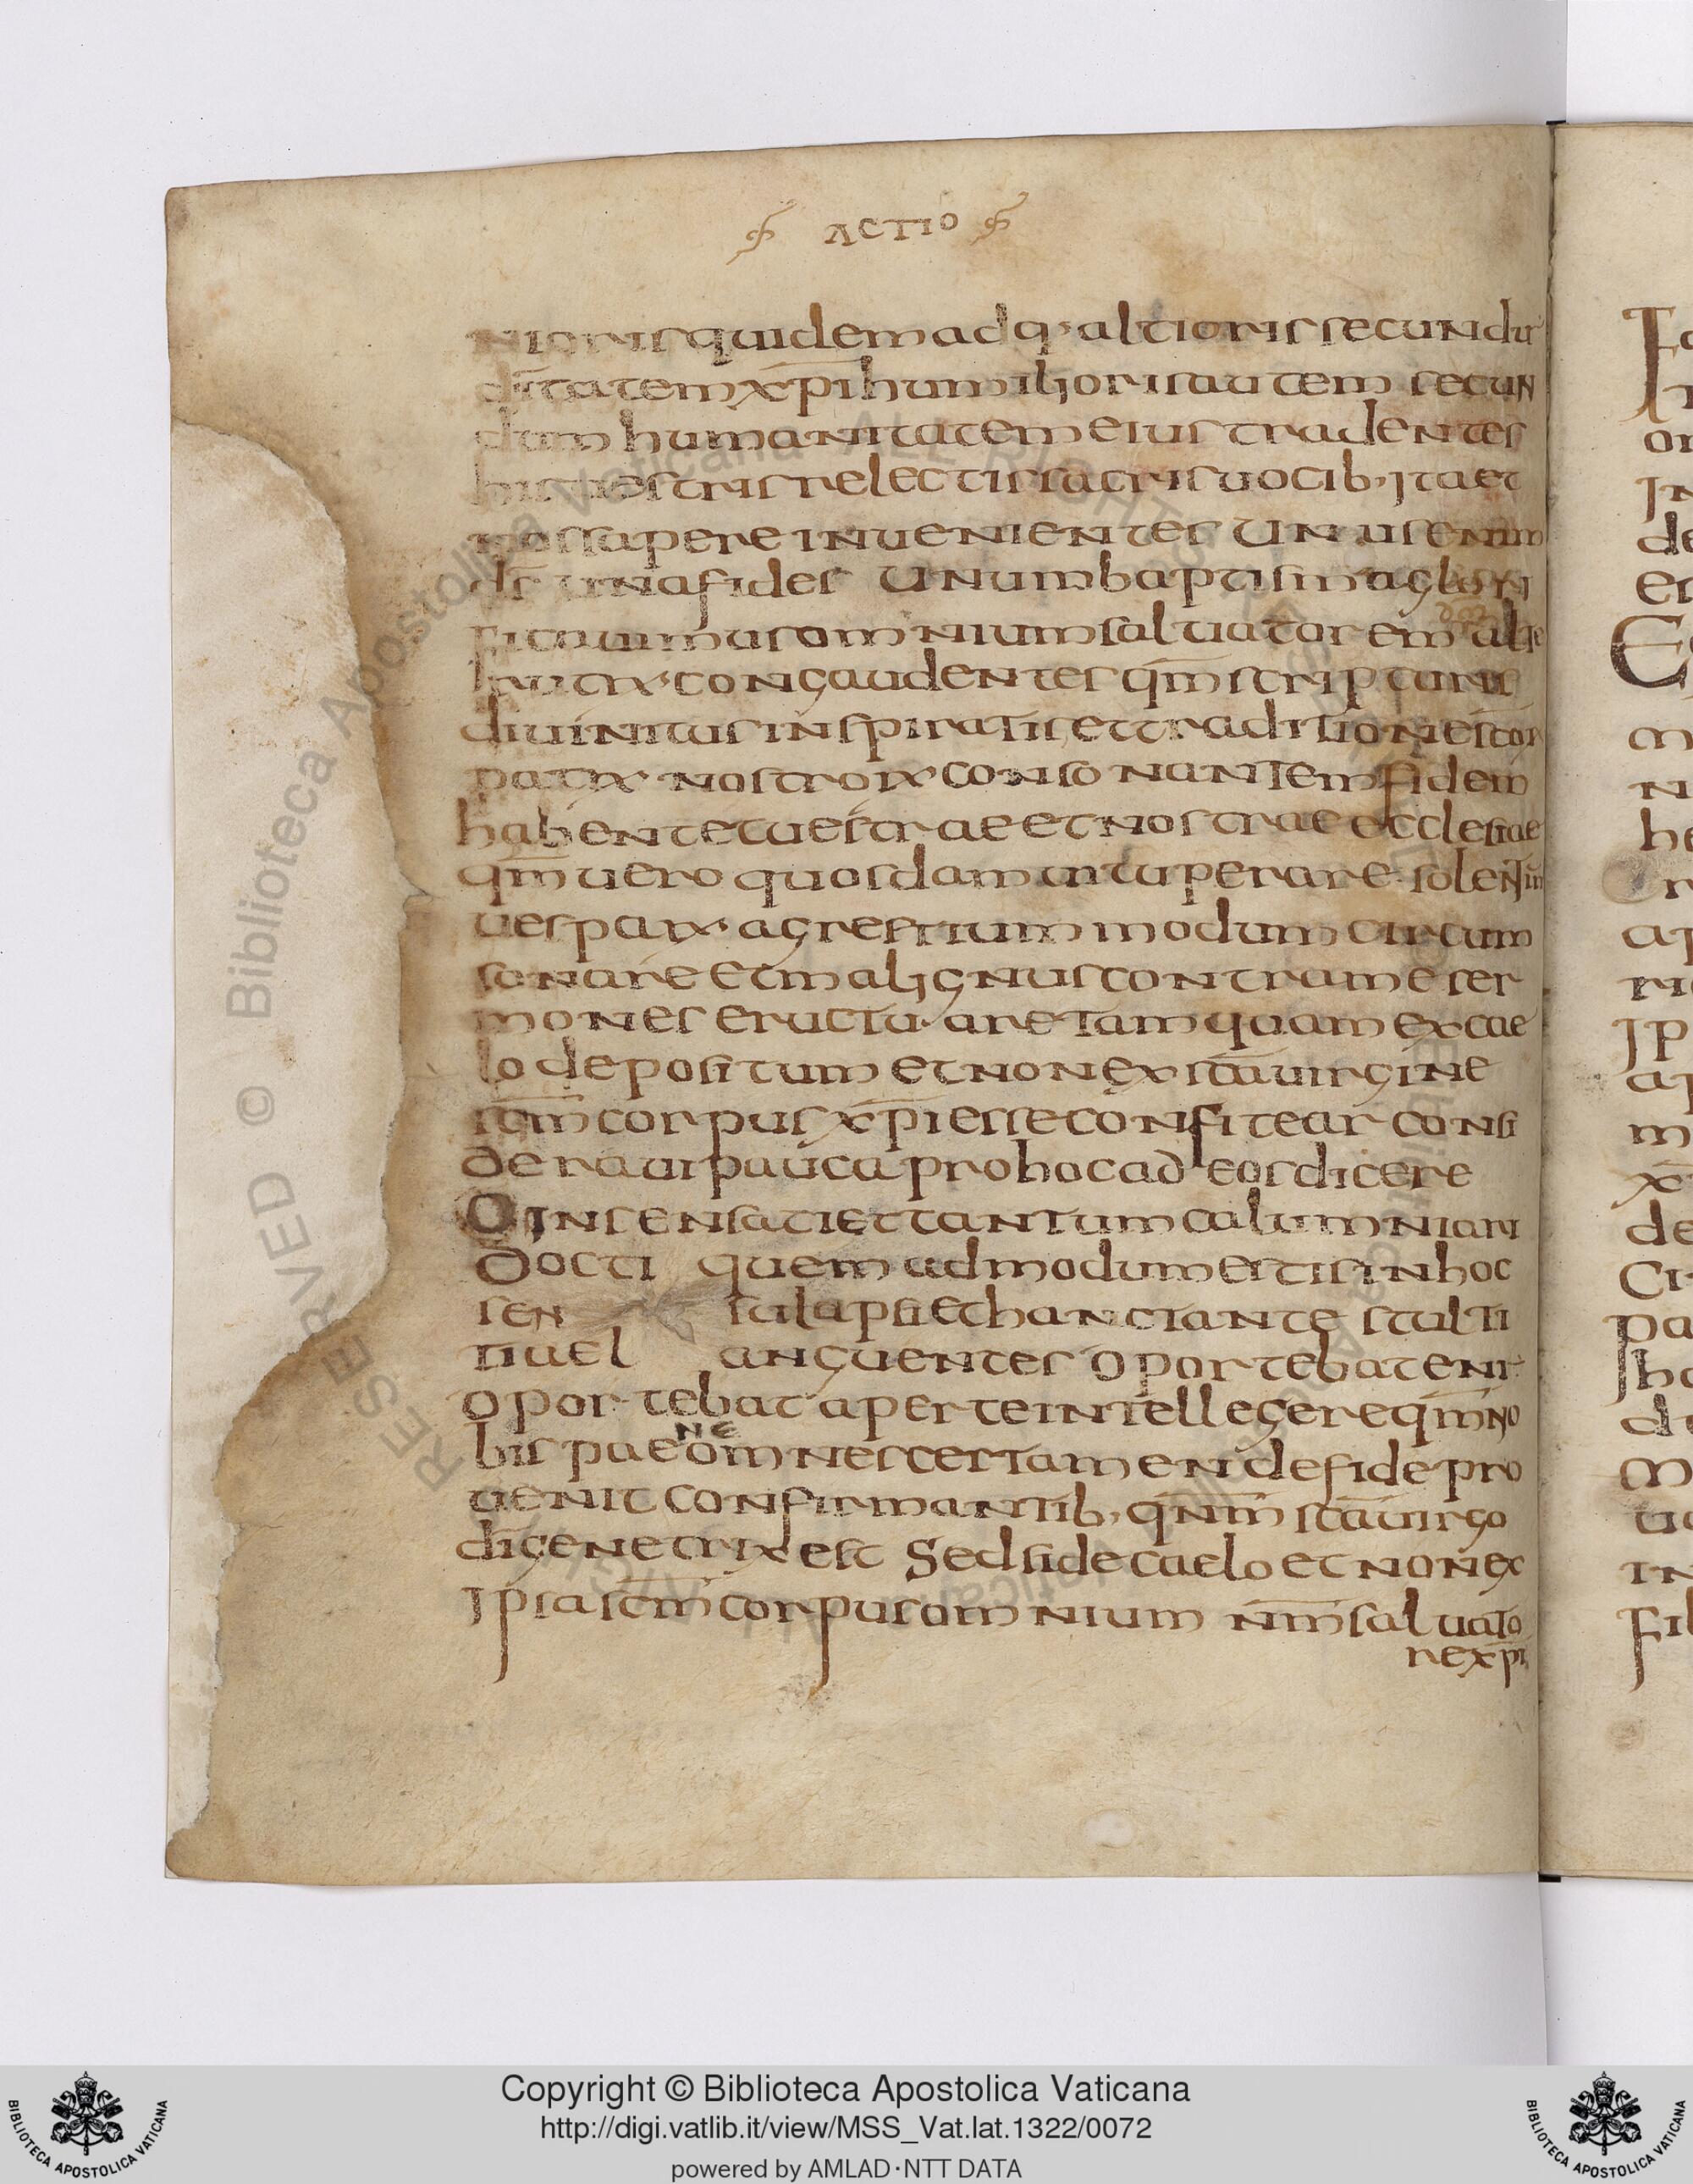 ACTIO
nioris quidem adq· altioris secundū
dītatem xp̄i humilioris autem secun
dum humanitatem eius tradentes
his uestris relectis sacris uocib· ita et
nos sapere inuenientes Unus enim
dś una fides Unum baptisma glori
ficauimus omnium saluatorem alte
congaudentes qm̄ scripturis
diuinitus inspiratis et traditioni scor
patrx nostrorx consonantem fidem
habent et uestrae et nostrae ecclesiae
qm̄ uero quosdam uituperare solentiū
uesparx· agrestium modum circum
sonare et malignus contra me ser
mones eructuare tamquam ex cae
lo depositum et non ex scā uirgine
scm̄ corpus xp̄i esse confitear consi
deraui pauca pro hoc ad eos dicere
O insensati et tantum calumniari
docti quem ad modum estis in hoc
sen su lapsi et hanc tante stulti
tiae l anguentes oportebat eni
oportebat aperte intellegere qm̄ no
bis paene omnes certamen de fide pro
uenit confirmantib· qnm̄ scā uirgo
dī genetrix est Sed si de caelo et non ex
ipsa scm̄ corpus omnium nm̄ saluato
re xp̄i
Copyright © Biblioteca Apostolica Vaticana
http://digi.vatlib.it/view/MSS_Vat.lat.1322/0072
powered by AMLAD·NTT DATA
BIBLIOTECA APOSTOLICA VATICANA
BIBLIOTECA APOSTOLICA VATICANA